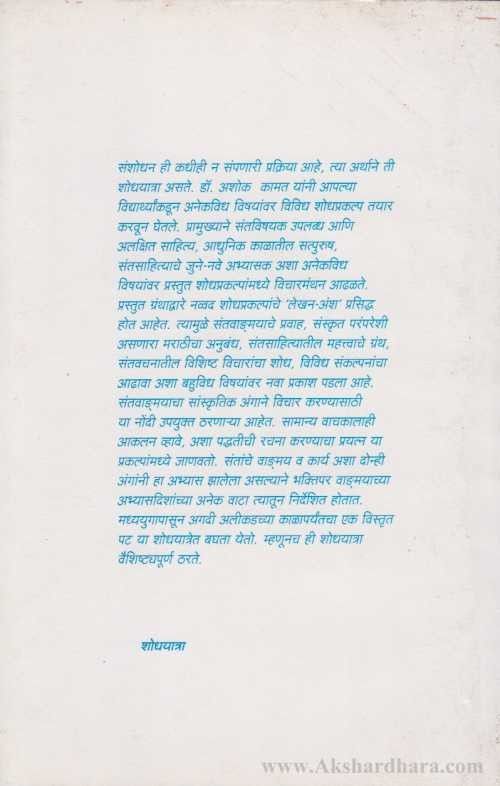 संशोधन ही कधीही न संपणारी प्रक्रिया आहे, त्या अर्थाने ती
शोधयात्रा असते. डॉ. अशोक कामत यांनी आपल्या
विद्यार्थ्यांकडून अनेकविध विषयांवर विविध शोधप्रकल्प तयार
करवून घेतले. प्रामुख्याने संतविषयक उपलब्ध आणि
अलक्षित साहित्य, आधुनिक काळातील सत्पुरुष,
संतसाहित्याचे जुने-नवे अभ्यासक अशा अनेकविध
विषयांवर प्रस्तुत शोधप्रकल्पांमध्ये विचारमंथन आढळते.
प्रस्तुत ग्रंथाद्वारे नव्वद शोधप्रकल्पांचे 'लेखन-अंश' प्रसिद्ध
होत आहेत. त्यामुळे संतवाङ्मयाचे प्रवाह, संस्कृत परंपरेशी
असणारा मराठीचा अनुबंध, संतसाहित्यातील महत्त्वाचे ग्रंथ,
संतवचनातील विशिष्ट विचारांचा शोध, विविध संकल्पनांचा
आढावा अशा बहुविध विषयांवर नवा प्रकाश पडला आहे.
संतवाङ्मयाचा सांस्कृतिक अंगाने विचार करण्यासाठी
या नोंदी उपयुक्त ठरणाऱ्या आहेत. सामान्य वाचकालाही
आकलन व्हावे, अशा पद्धतीची रचना करण्याचा प्रयत्न या
प्रकल्पांमध्ये जाणवतो. संतांचे वाङ्मय व कार्य अशा दोन्ही
अंगांनी हा अभ्यास झालेला असल्याने भक्तिपर वाङ्मयाच्या
अभ्यासदिशांच्या अनेक वाटा त्यातून निर्देशित होतात.
मध्ययुगापासून अगदी अलीकडच्या काळापर्यंतचा एक विस्तृत
पट या शोधयात्रेत बघता येतो. म्हणूनच ही शोधयात्रा
वैशिष्ट्यपूर्ण ठरते.
शोधयात्रा
www.Akshardhara.com